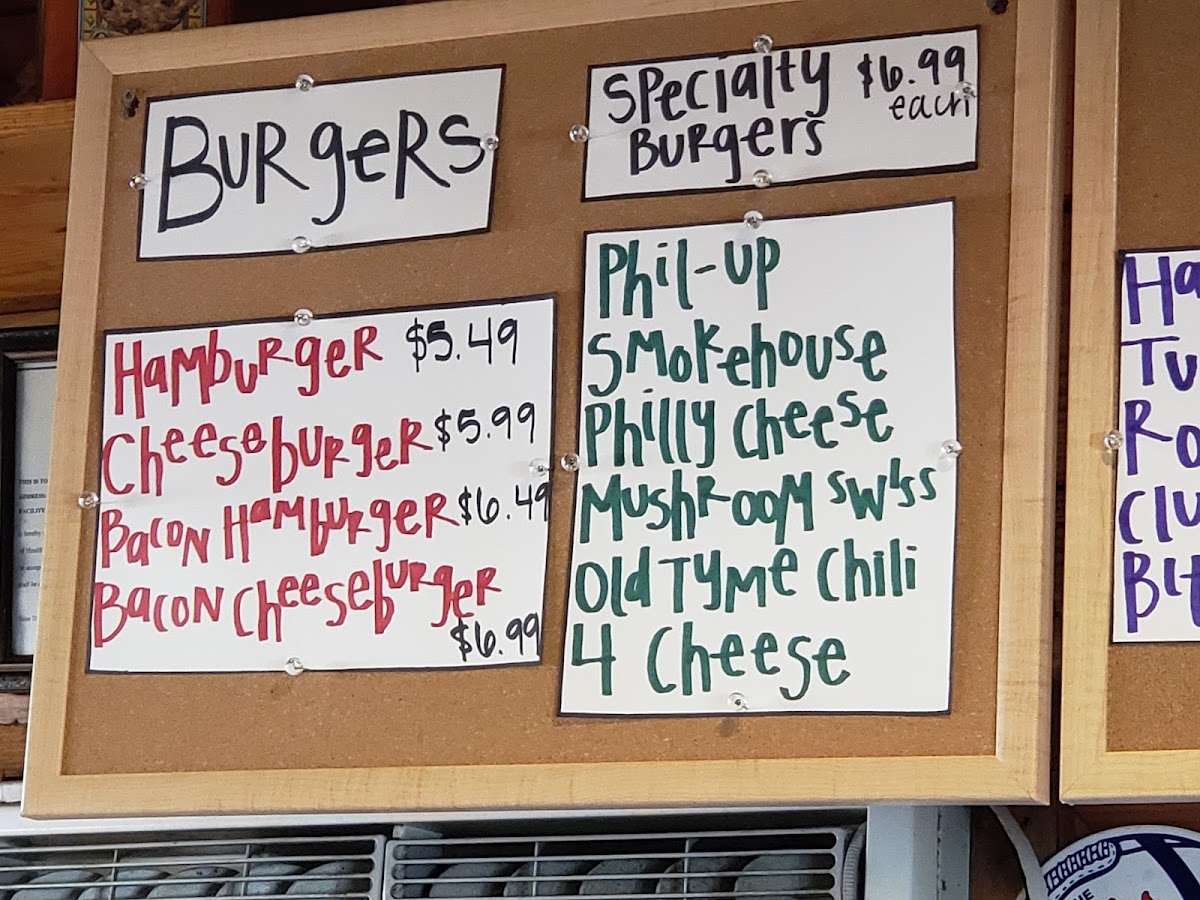 Burgers
Hamburger $5.49
Cheeseburger $5.99
Bacon Hamburger $6.49
Bacon Cheeseburger
$6.99
Specialty $6.99
Burgers each
Phil-up
Smokehouse
Philly Cheese
Mushroom Swiss
Old Tyme Chili
4 Cheese
Ha
Tu
Ro
Clu
THIS IS TO
FACILITY
THE